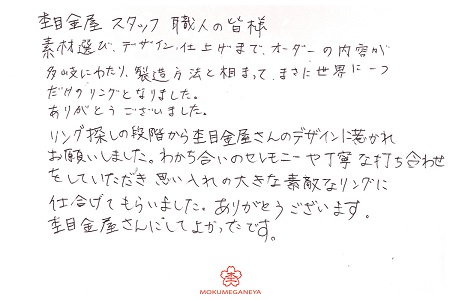 杢目金屋 スタッフ 職人の皆様
素材選び、デザイン、仕上げまで、オーダーの内容が
多岐にわたり、製造方法と相まって、まさに世界に一つ
だけのリングとなりました。
ありがとうございました。
リング探しの段階から杢目金屋さんのデザインに惹かれ
お願いしました。わかち合いのセレモニーや丁寧な打ち合わせ
をしていただき 思い入れの大きな素敵なリングに
仕上げてもらいました。ありがとうございます。
杢目金屋さんにしてよかったです。
MOKUMEGANEYA